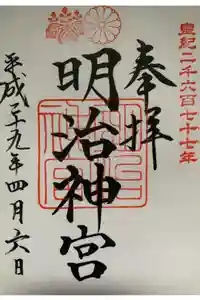 皇紀二千六百七十七年
奉拝
明治神宮
平成二十九年四月六日